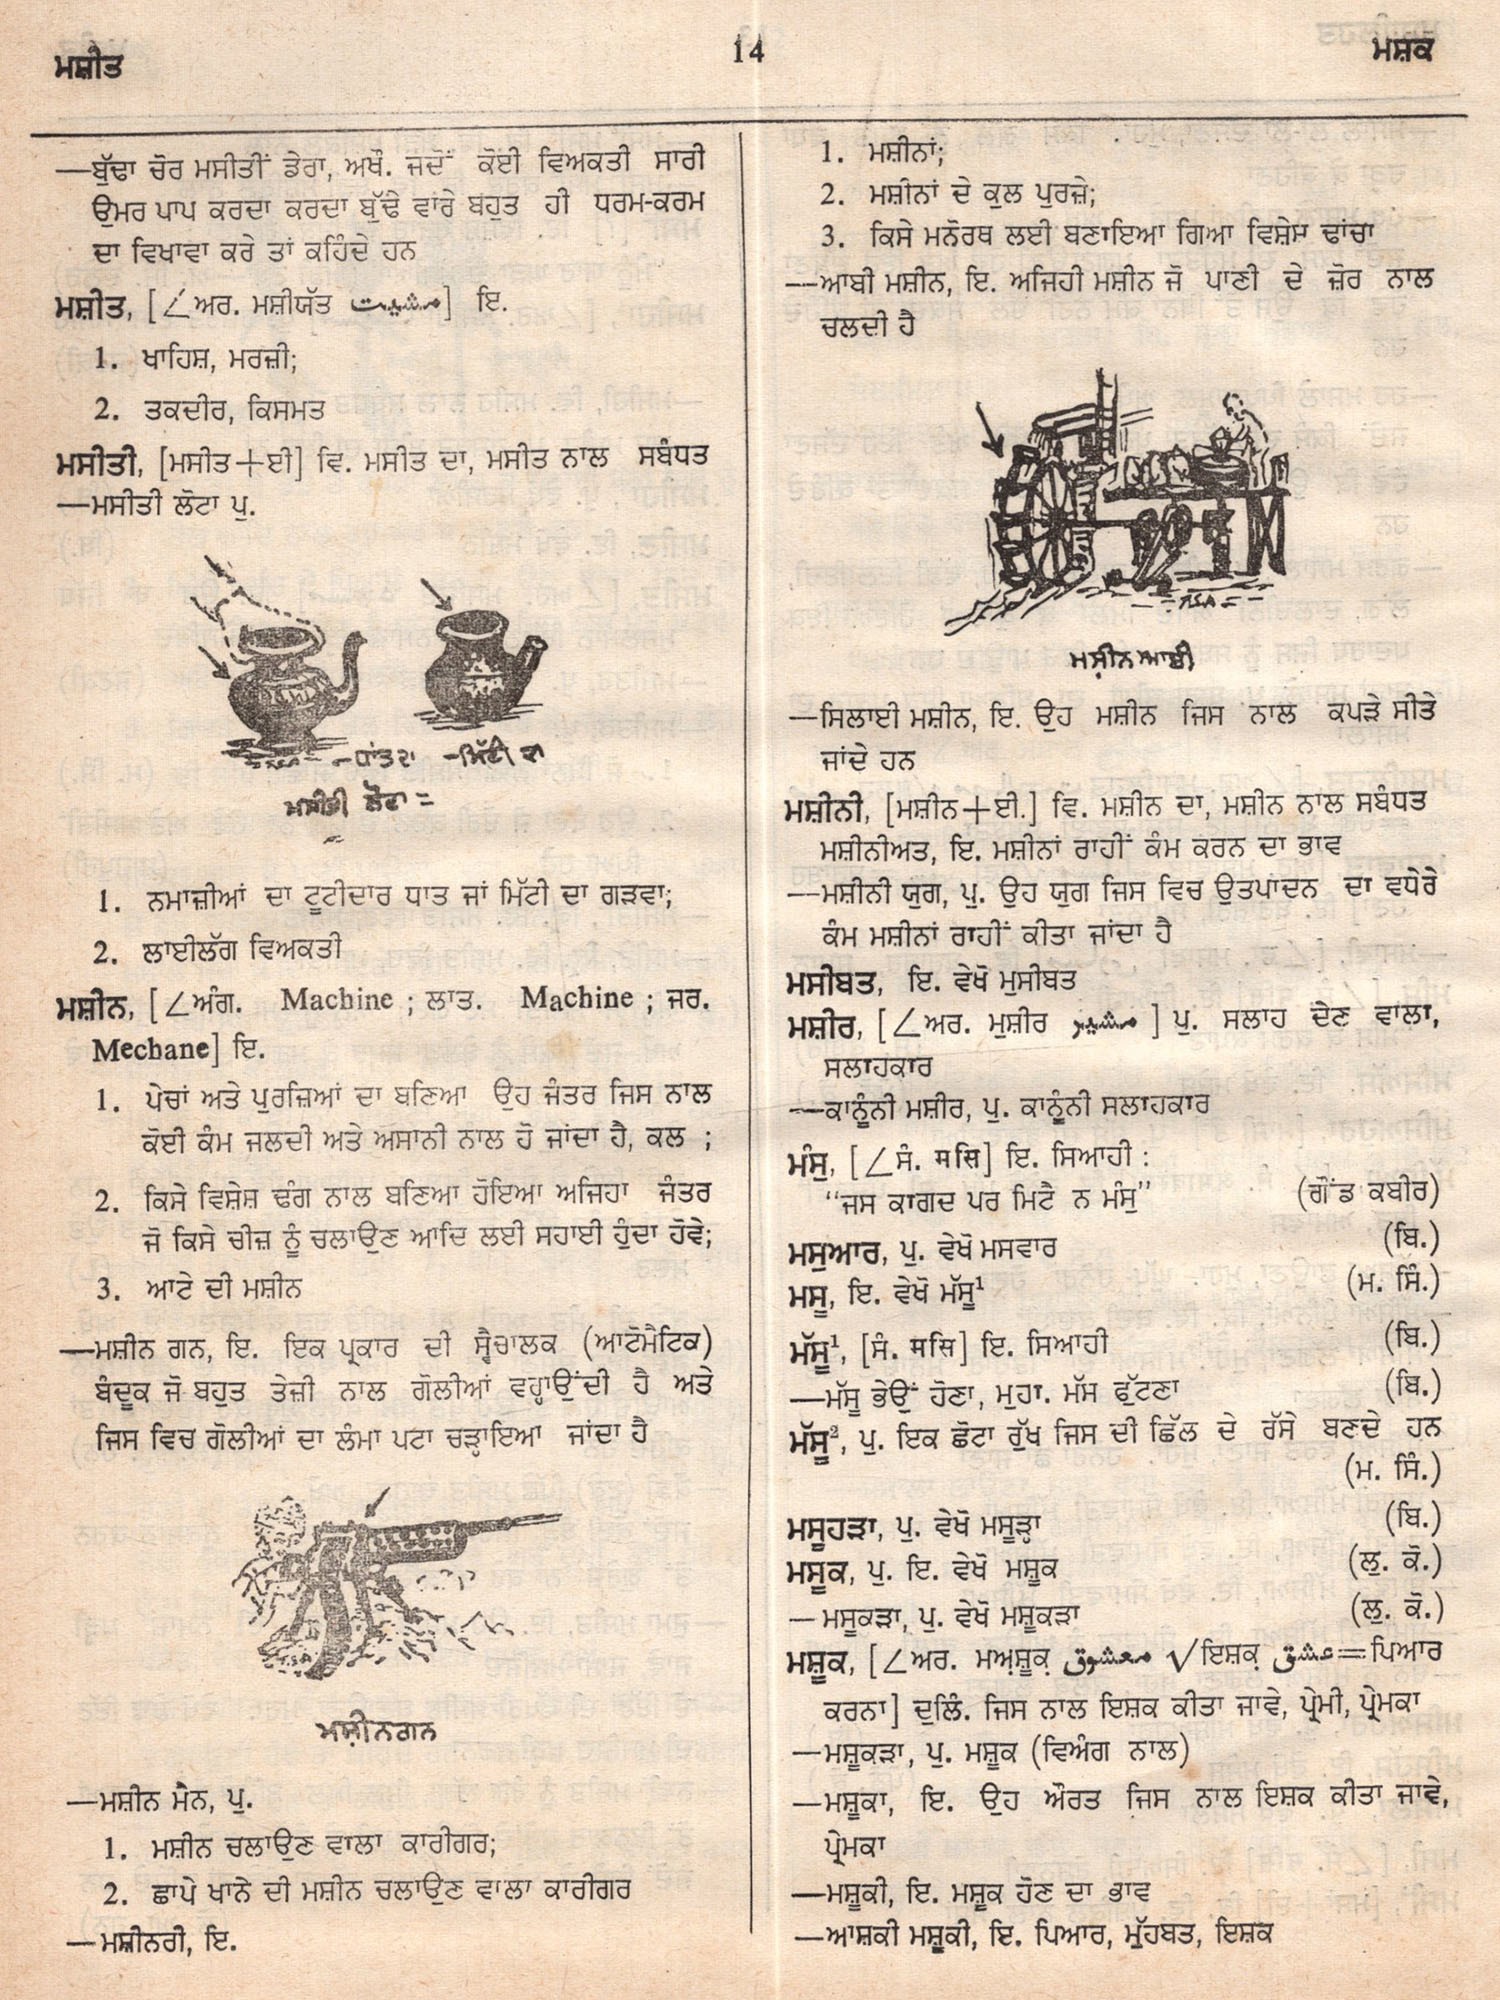 ਮਸ਼ੀਤ
14
ਮਸ਼ਕ
—ਬੁੱਢਾ ਚੋਰ ਮਸੀਤੀਂ ਡੇਰਾ, ਅਖੌ. ਜਦੋਂ ਕੋਈ ਵਿਅਕਤੀ ਸਾਰੀ
ਉਮਰ ਪਾਪ ਕਰਦਾ ਕਰਦਾ ਬੁੱਢੇ ਵਾਰੇ ਬਹੁਤ ਹੀ ਧਰਮ-ਕਰਮ
ਦਾ ਵਿਖਾਵਾ ਕਰੇ ਤਾਂ ਕਹਿੰਦੇ ਹਨ
ਮਸ਼ੀਤ, [∠ਅਰ. ਮਸ਼ੀਯੱਤ مشیت] ਇ.
1. ਖਾਹਿਸ਼, ਮਰਜ਼ੀ;
2. ਤਕਦੀਰ, ਕਿਸਮਤ
ਮਸੀਤੀ, [ਮਸੀਤ+ਈ] ਵਿ. ਮਸੀਤ ਦਾ, ਮਸੀਤ ਨਾਲ ਸਬੰਧਤ
—ਮਸੀਤੀ ਲੋਟਾ ਪੁ.
—ਧਾਂਤ ਦਾ —ਮਿੱਟੀ ਦਾ
ਮਸੀਤੀ ਲੋਟਾ =
1. ਨਮਾਜ਼ੀਆਂ ਦਾ ਟੂਟੀਦਾਰ ਧਾਤ ਜਾਂ ਮਿੱਟੀ ਦਾ ਗੜਵਾ;
2. ਲਾਈਲੱਗ ਵਿਅਕਤੀ
ਮਸ਼ੀਨ, [∠ਅੰਗ. Machine ; ਲਾਤ. Machine ; ਜਰ.
Mechane] ਇ.
1. ਪੇਚਾਂ ਅਤੇ ਪੁਰਜ਼ਿਆਂ ਦਾ ਬਣਿਆ ਉਹ ਜੰਤਰ ਜਿਸ ਨਾਲ
ਕੋਈ ਕੰਮ ਜਲਦੀ ਅਤੇ ਅਸਾਨੀ ਨਾਲ ਹੋ ਜਾਂਦਾ ਹੈ, ਕਲ ;
2. ਕਿਸੇ ਵਿਸ਼ੇਸ਼ ਢੰਗ ਨਾਲ ਬਣਿਆ ਹੋਇਆ ਅਜਿਹਾ ਜੰਤਰ
ਜੋ ਕਿਸੇ ਚੀਜ਼ ਨੂੰ ਚਲਾਉਣ ਆਦਿ ਲਈ ਸਹਾਈ ਹੁੰਦਾ ਹੋਵੇ;
3. ਆਟੇ ਦੀ ਮਸ਼ੀਨ
—ਮਸ਼ੀਨ ਗਨ, ਇ. ਇਕ ਪ੍ਰਕਾਰ ਦੀ ਸ੍ਵੈਚਾਲਕ (ਆਟੋਮੈਟਿਕ)
ਬੰਦੂਕ ਜੋ ਬਹੁਤ ਤੇਜ਼ੀ ਨਾਲ ਗੋਲੀਆਂ ਵਰ੍ਹਾਉਂਦੀ ਹੈ ਅਤੇ
ਜਿਸ ਵਿਚ ਗੋਲੀਆਂ ਦਾ ਲੰਮਾ ਪਟਾ ਚੜ੍ਹਾਇਆ ਜਾਂਦਾ ਹੈ
ਮਸ਼ੀਨਗਨ
—ਮਸ਼ੀਨ ਮੈਨ, ਪੁ.
1. ਮਸ਼ੀਨ ਚਲਾਉਣ ਵਾਲਾ ਕਾਰੀਗਰ;
2. ਛਾਪੇ ਖਾਨੇ ਦੀ ਮਸ਼ੀਨ ਚਲਾਉਣ ਵਾਲਾ ਕਾਰੀਗਰ
—ਮਸ਼ੀਨਰੀ, ਇ.
1. ਮਸ਼ੀਨਾਂ;
2. ਮਸ਼ੀਨਾਂ ਦੇ ਕੁਲ ਪੁਰਜ਼ੇ;
3. ਕਿਸੇ ਮਨੋਰਥ ਲਈ ਬਣਾਇਆ ਗਿਆ ਵਿਸ਼ੇਸ਼ ਢਾਂਚਾ
—ਆਬੀ ਮਸ਼ੀਨ, ਇ. ਅਜਿਹੀ ਮਸ਼ੀਨ ਜੋ ਪਾਣੀ ਦੇ ਜ਼ੋਰ ਨਾਲ
ਚਲਦੀ ਹੈ
ਮਸ਼ੀਨ ਆਬੀ
—ਸਿਲਾਈ ਮਸ਼ੀਨ, ਇ. ਉਹ ਮਸ਼ੀਨ ਜਿਸ ਨਾਲ ਕਪੜੇ ਸੀਤੇ
ਜਾਂਦੇ ਹਨ
ਮਸ਼ੀਨੀ, [ਮਸ਼ੀਨ+ਈ.] ਵਿ. ਮਸ਼ੀਨ ਦਾ, ਮਸ਼ੀਨ ਨਾਲ ਸਬੰਧਤ
ਮਸ਼ੀਨੀਅਤ, ਇ. ਮਸ਼ੀਨਾਂ ਰਾਹੀਂ ਕੰਮ ਕਰਨ ਦਾ ਭਾਵ
—ਮਸ਼ੀਨੀ ਯੁਗ, ਪੁ. ਉਹ ਯੁਗ ਜਿਸ ਵਿਚ ਉਤਪਾਦਨ ਦਾ ਵਧੇਰੇ
ਕੰਮ ਮਸ਼ੀਨਾਂ ਰਾਹੀਂ ਕੀਤਾ ਜਾਂਦਾ ਹੈ
ਮਸੀਬਤ, ਇ. ਵੇਖੋ ਮੁਸੀਬਤ
ਮਸ਼ੀਰ, [∠ਅਰ. ਮੁਸ਼ੀਰ مشیر ] ਪੁ. ਸਲਾਹ ਦੇਣ ਵਾਲਾ,
ਸਲਾਹਕਾਰ
—ਕਾਨੂੰਨੀ ਮਸ਼ੀਰ, ਪੁ. ਕਾਨੂੰਨੀ ਸਲਾਹਕਾਰ
ਮੰਸੁ, [∠ਸੰ. ਸਸਿ] ਇ. ਸਿਆਹੀ :
“ਜਸ ਕਾਗਦ ਪਰ ਮਿਟੈ ਨ ਮੰਸੁ” (ਗੌਂਡ ਕਬੀਰ)
ਮਸੁਆਰ, ਪੁ. ਵੇਖੋ ਮਸਵਾਰ (ਬਿ.)
ਮਸੂ, ਇ. ਵੇਖੋ ਮੱਸੂ¹ (ਮ. ਸਿੰ.)
ਮੱਸੂ¹, [ਸੰ. ਸਸਿ] ਇ. ਸਿਆਹੀ (ਬਿ.)
—ਮੱਸੂ ਭੇਉਂ ਹੋਣਾ, ਮੁਹਾ. ਮੱਸ ਫੁੱਟਣਾ (ਬਿ.)
ਮੱਸੂ², ਪੁ. ਇਕ ਛੋਟਾ ਰੁੱਖ ਜਿਸ ਦੀ ਛਿੱਲ ਦੇ ਰੱਸੇ ਬਣਦੇ ਹਨ
(ਮ. ਸਿੰ.)
ਮਸੂਹੜਾ, ਪੁ. ਵੇਖੋ ਮਸੂੜ੍ਹਾ (ਬਿ.)
ਮਸੂਕ, ਪੁ. ਇ. ਵੇਖੋ ਮਸ਼ੂਕ (ਲੁ. ਕੋ.)
—ਮਸੂਕੜਾ, ਪੁ. ਵੇਖੋ ਮਸ਼ੂਕੜਾ (ਲੁ. ਕੋ.)
ਮਸ਼ੂਕ, [∠ਅਰ. ਮਅ਼ਸ਼ੂਕ਼ معشوق √ਇਸ਼ਕ਼ عشق=ਪਿਆਰ
ਕਰਨਾ] ਦੁਲਿੰ. ਜਿਸ ਨਾਲ ਇਸ਼ਕ ਕੀਤਾ ਜਾਵੇ, ਪ੍ਰੇਮੀ, ਪ੍ਰੇਮਕਾ
—ਮਸ਼ੂਕੜਾ, ਪੁ. ਮਸ਼ੂਕ (ਵਿਅੰਗ ਨਾਲ)
—ਮਸ਼ੂਕਾ, ਇ. ਉਹ ਔਰਤ ਜਿਸ ਨਾਲ ਇਸ਼ਕ ਕੀਤਾ ਜਾਵੇ,
ਪ੍ਰੇਮਕਾ
—ਮਸ਼ੂਕੀ, ਇ. ਮਸ਼ੂਕ ਹੋਣ ਦਾ ਭਾਵ
—ਆਸ਼ਕੀ ਮਸ਼ੂਕੀ, ਇ. ਪਿਆਰ, ਮੁੱਹਬਤ, ਇਸ਼ਕ